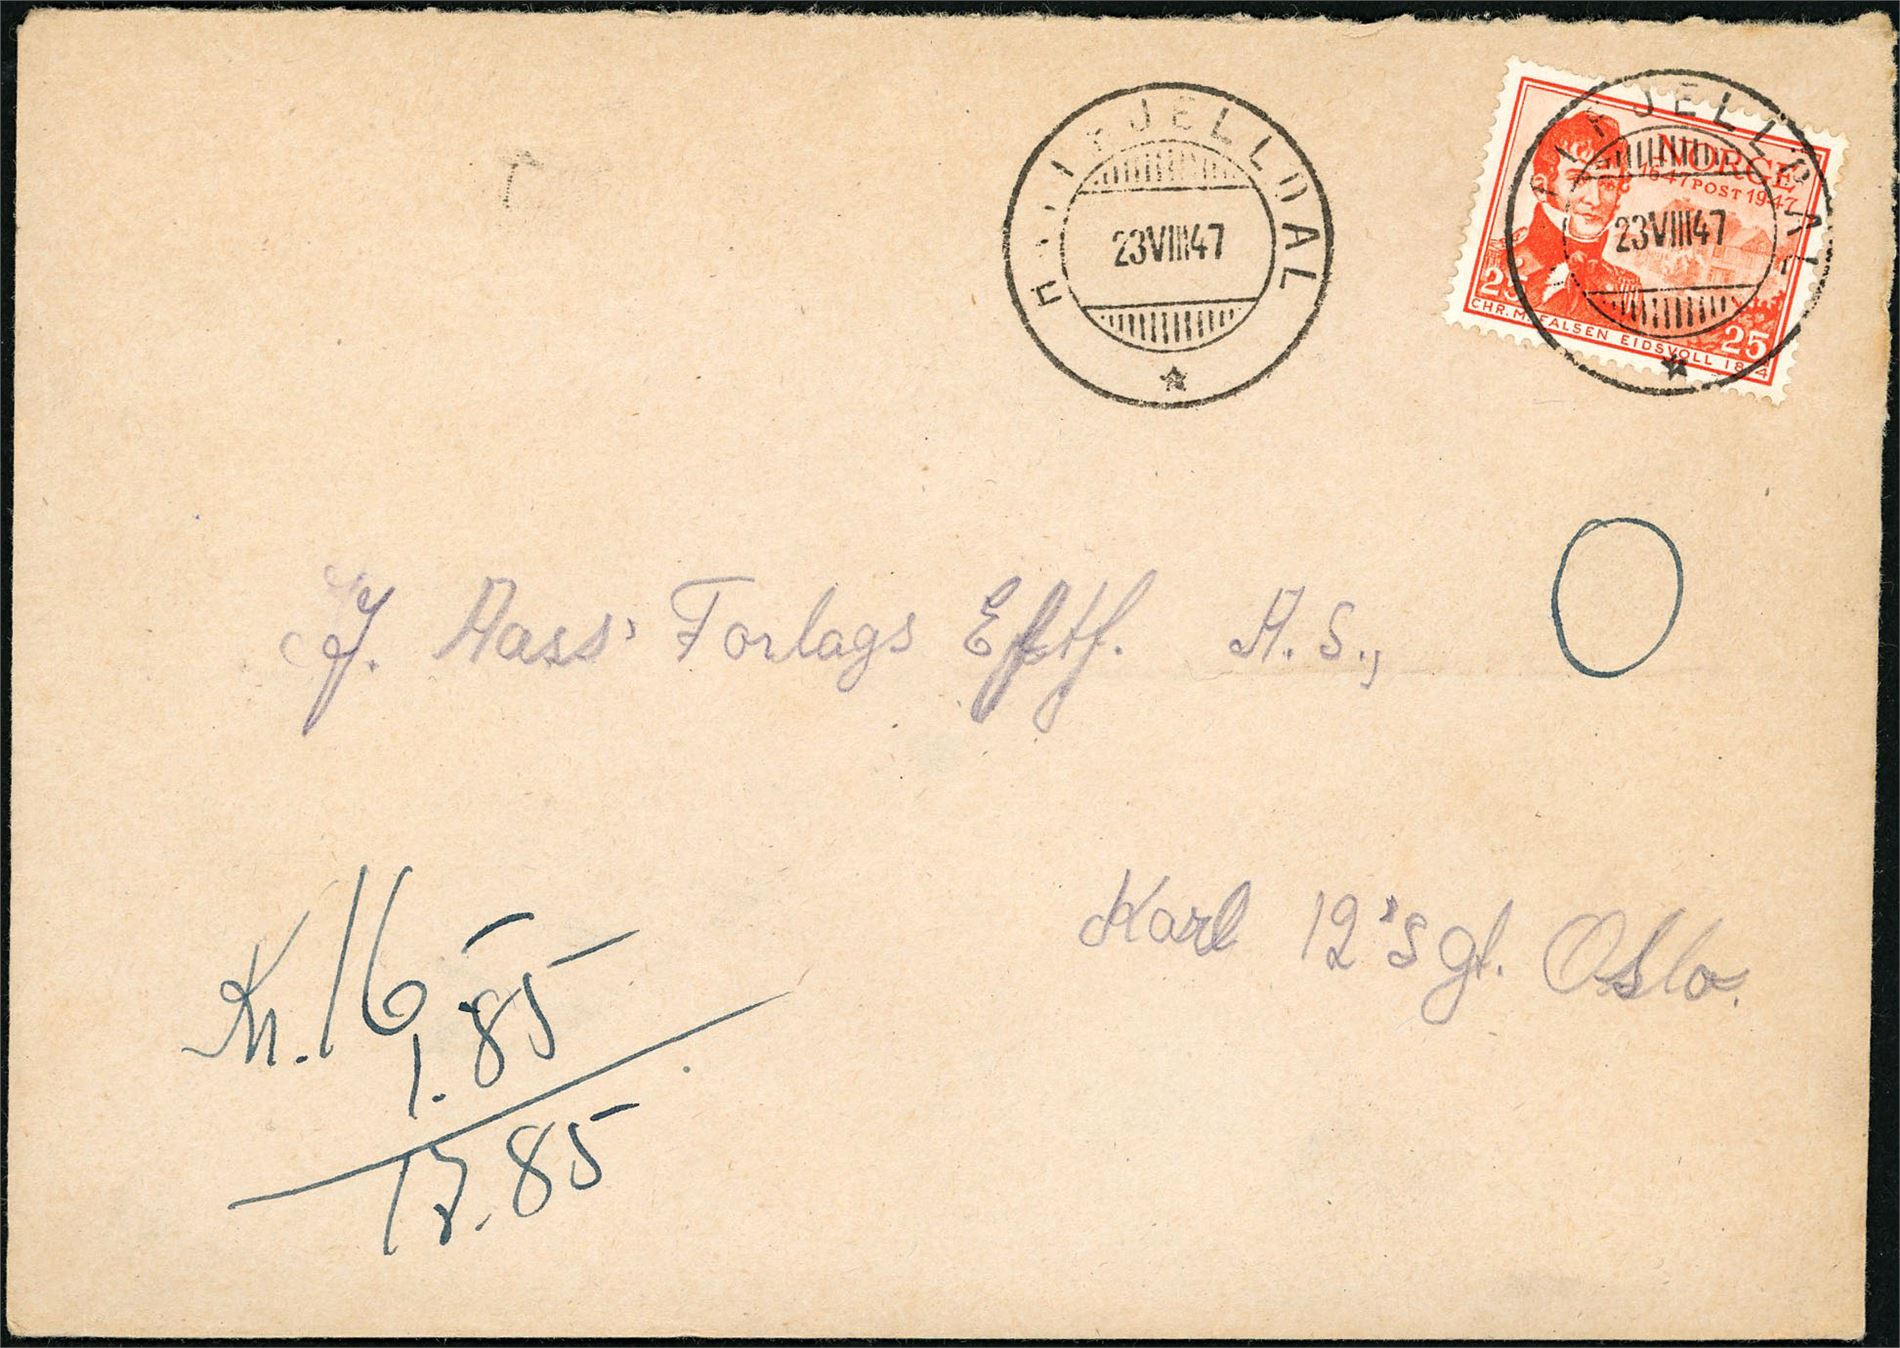 HATTFJELLDAL
23VIII47
HATTFJELLDAL
23VIII47
NORGE
1647 POST 1947
25
25
CHR. M. FALSEN EIDSVOLL 1814
J. Aass' Forlags Eftf. A.S.,
Karl 12's gt. Oslo.
Kr. 16,-
1.85
17.85